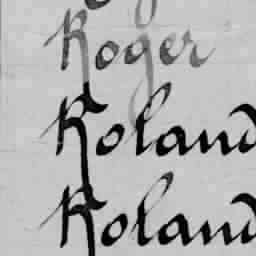 Roger
Roland
Roland